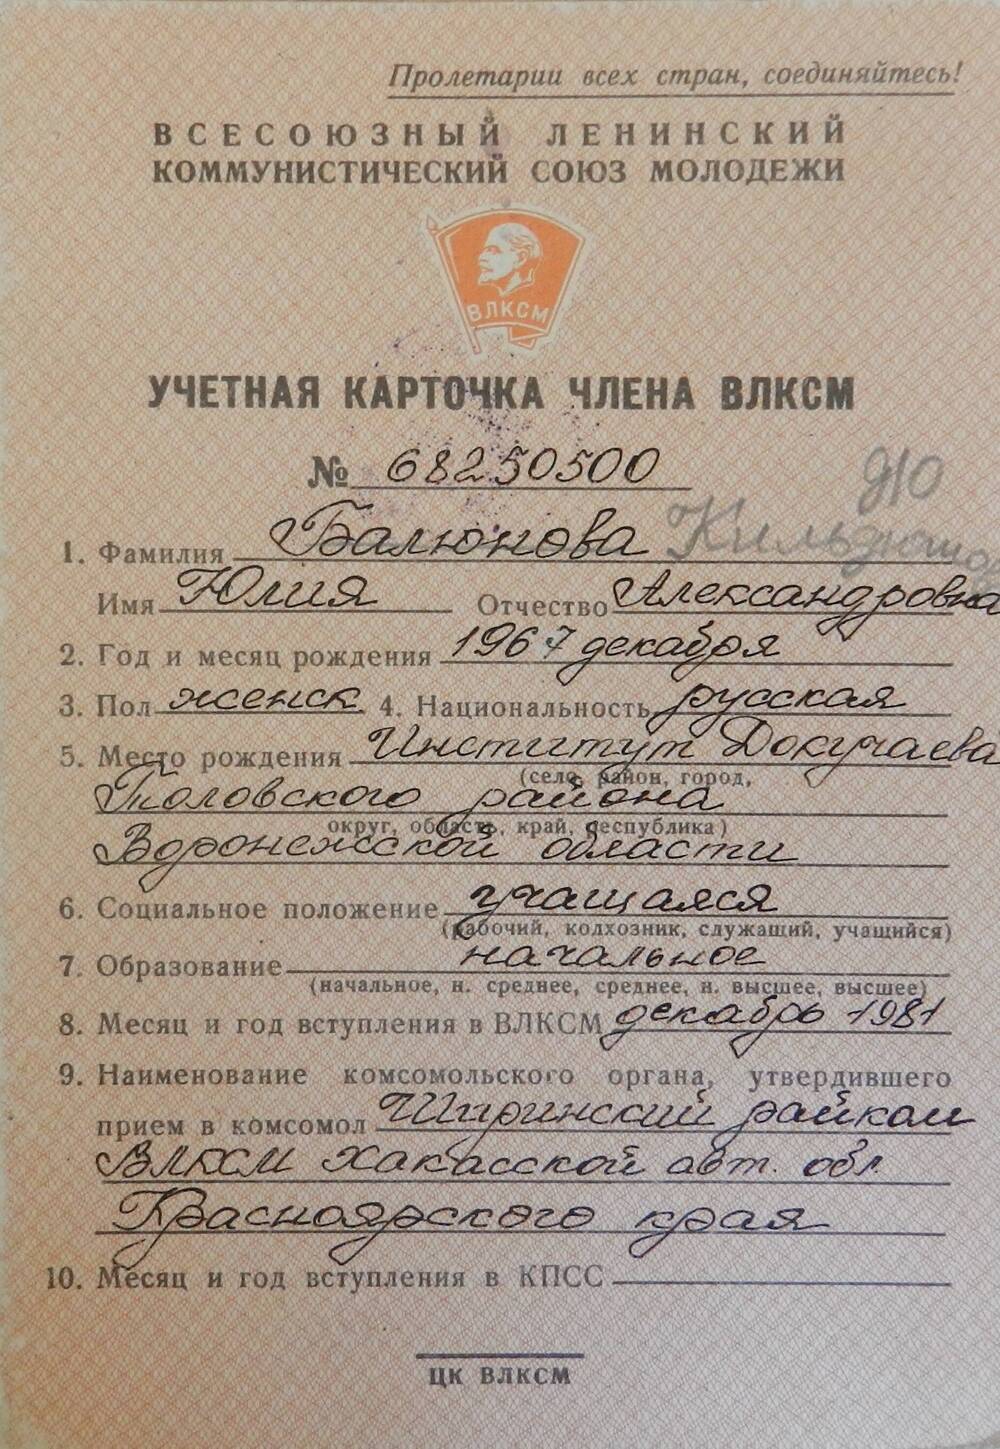 Пролетарии всех стран, соединяйтесь!
ВСЕСОЮЗНЫЙ ЛЕНИНСКИЙ
КОММУНИСТИЧЕСКИЙ СОЮЗ МОЛОДЕЖИ
ВЛКСМ
УЧЕТНАЯ КАРТОЧКА ЧЛЕНА ВЛКСМ
№ 68250500
1. Фамилия Балюнова
Имя Юлия Отчество Александровна
2. Год и месяц рождения 1967 декабря
3. Пол женск. 4. Национальность русская
5. Место рождения Институт Докучаева
(село, район, город,
Таловского района
округ, область, край, республика)
Воронежской области
6. Социальное положение учащаяся
(рабочий, колхозник, служащий, учащийся)
7. Образование начальное
(начальное, н. среднее, среднее, н. высшее, высшее)
8. Месяц и год вступления в ВЛКСМ декабрь 1981
9. Наименование комсомольского органа, утвердившего
прием в комсомол Ширинский райком
ВЛКСМ Хакасской авт. обл.
Красноярского края
10. Месяц и год вступления в КПСС
ЦК ВЛКСМ